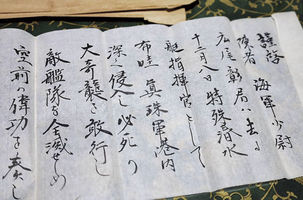 謹啓 海軍少尉
廣尾彰君ハ去る
十二月八日特殊潜水
艇指揮官として
布哇真珠軍港内
深く侵し必死の
大奇襲を敢行し
敵艦隊を全滅せしめ
空前の偉功を奏し